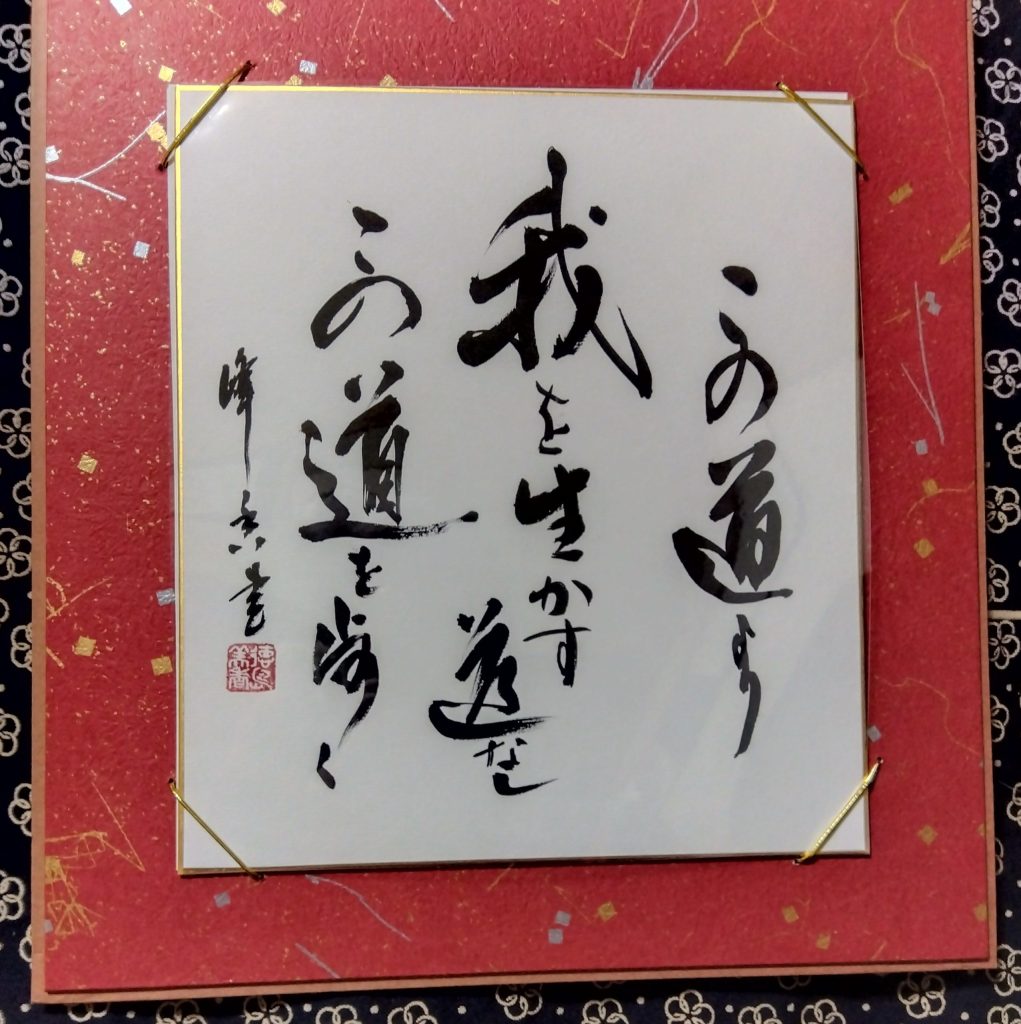 この道より
我を生かす道なし
この道を歩く
峰香書